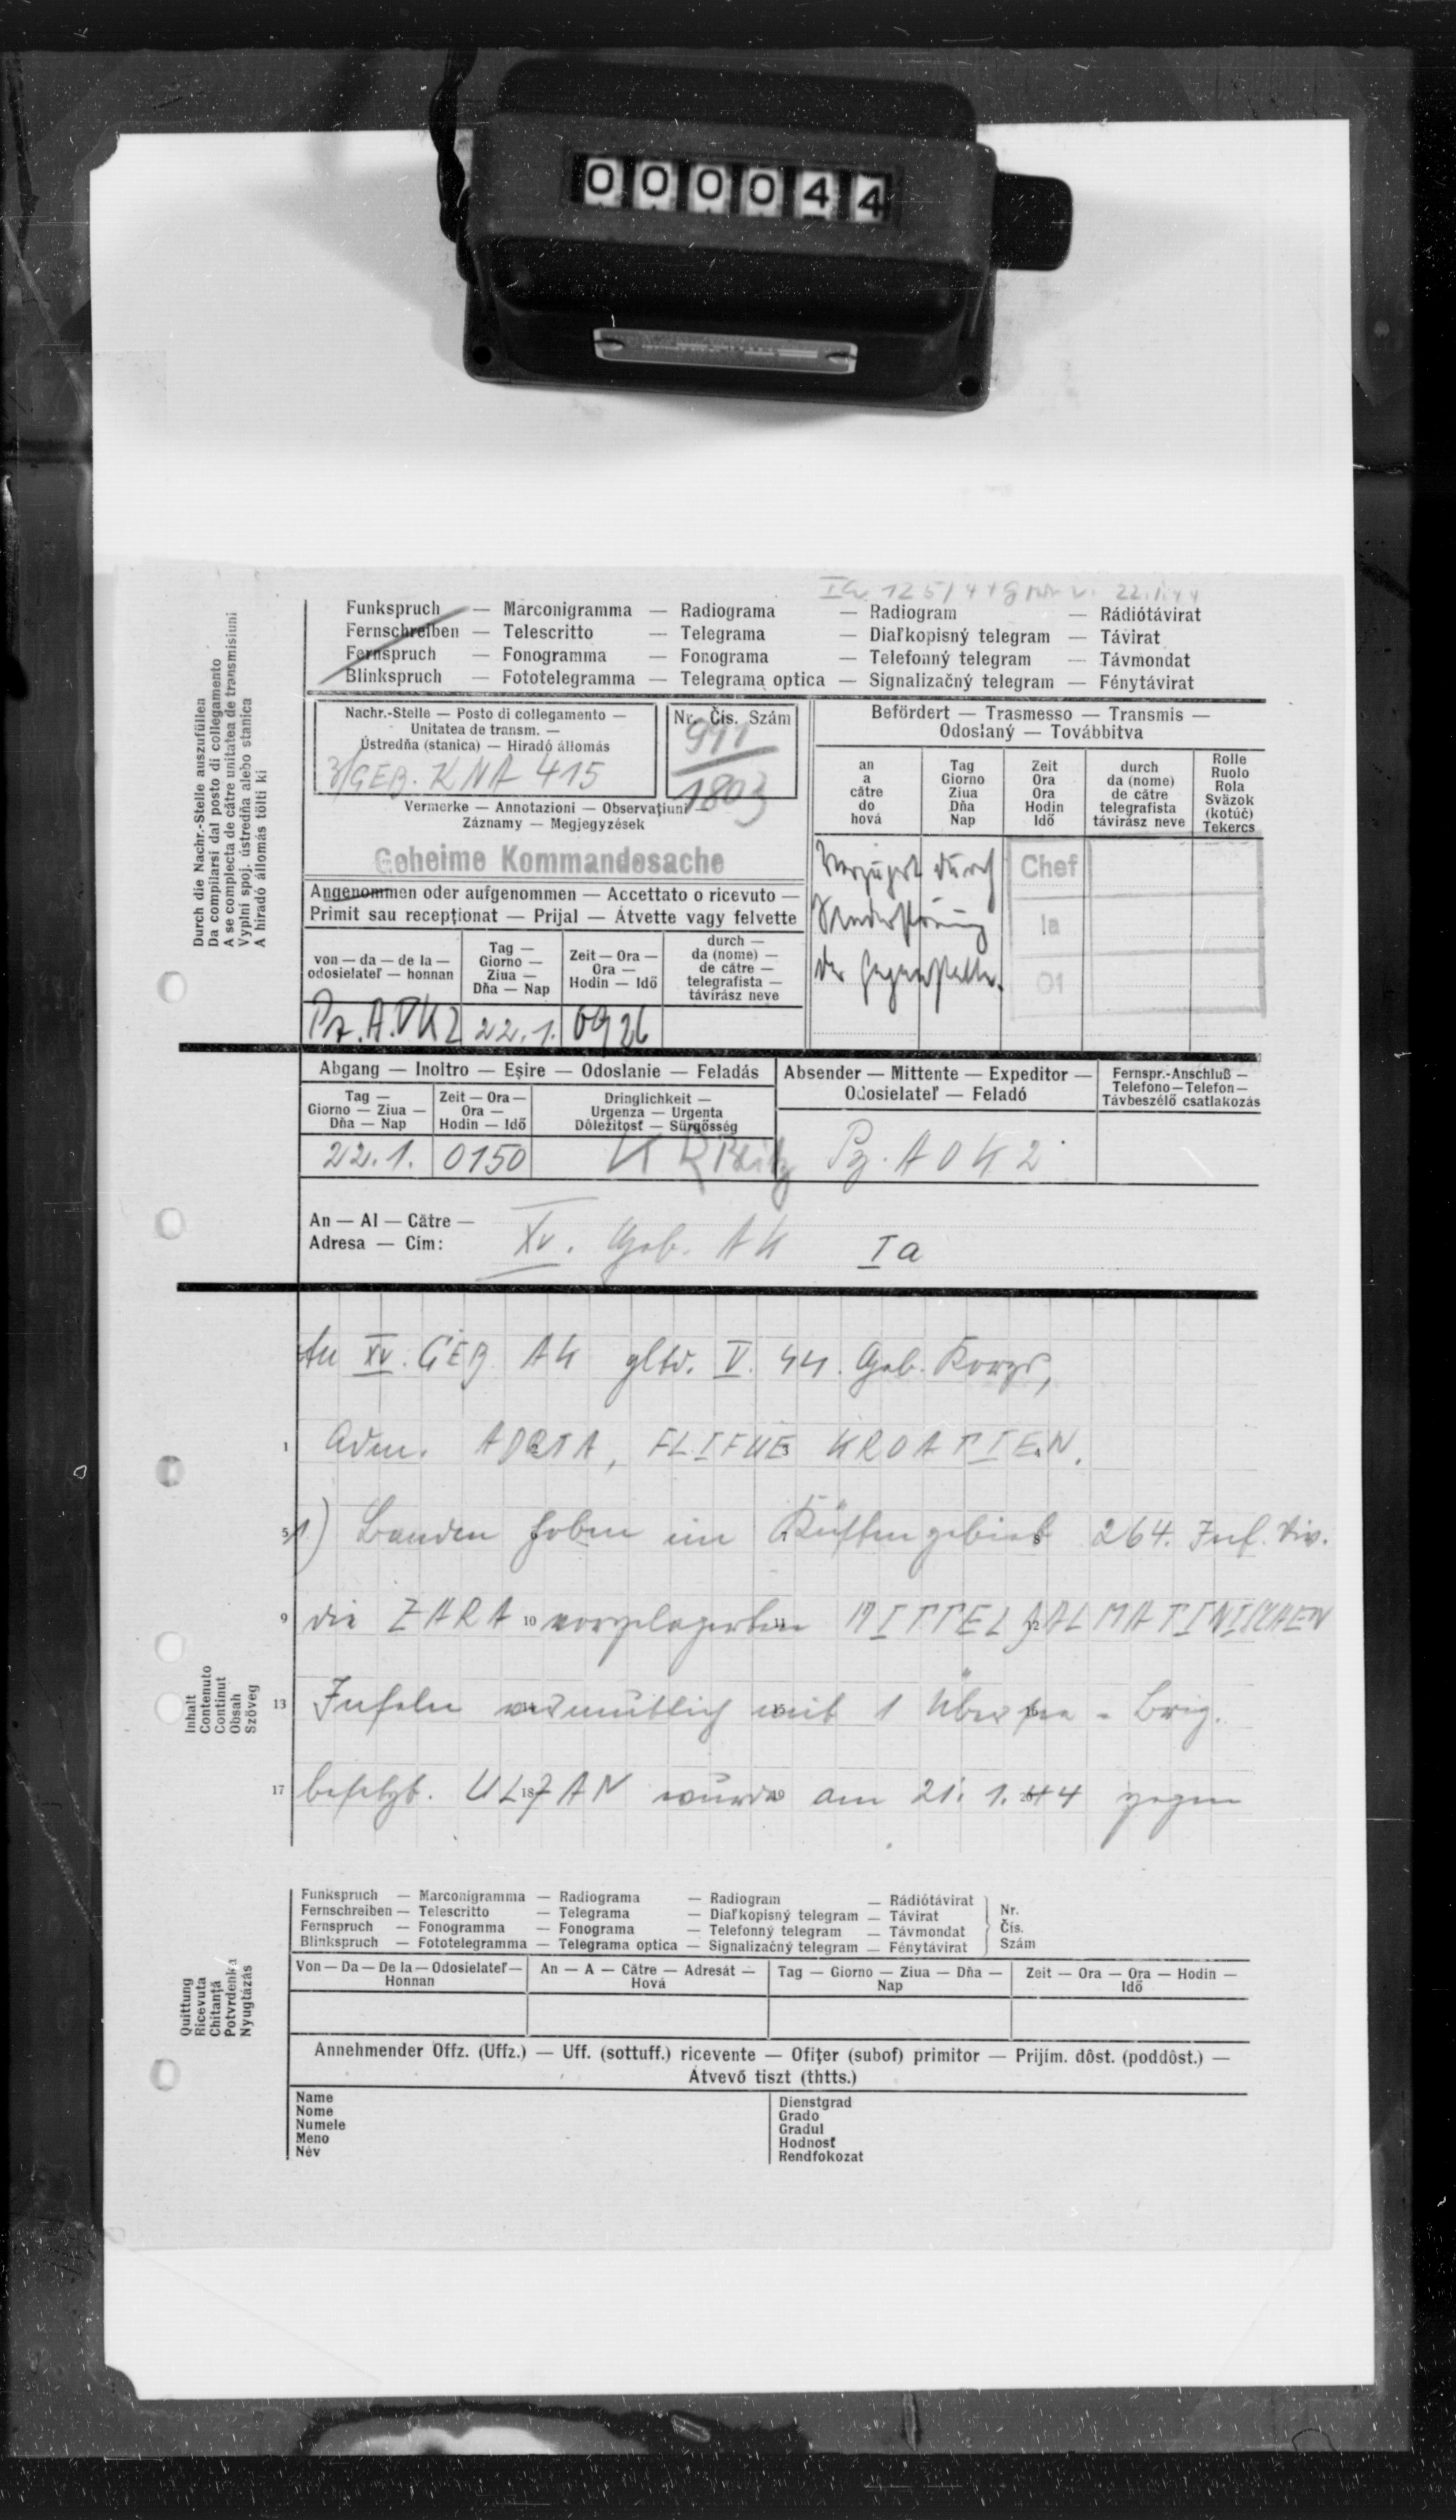 000044
Ia 125/44 gKdos v. 22.1.44
Funkspruch — Marconigramma — Radiograma — Radiogram — Rádiótávirat
Fernschreiben — Telescritto — Telegrama — Diaľkopisný telegram — Távirat
Fernspruch — Fonogramma — Fonograma — Telefonný telegram — Távmondat
Blinkspruch — Fototelegramma — Telegrama optica — Signalizačný telegram — Fénytávirat
Durch die Nachr.-Stelle auszufüllen
Da compilarsi dal posto di collegamento
A se complecta de către unitatea de transmisiuni
Vyplní spoj. ústredňa alebo stanica
A hiradó állomás tölti ki
Nachr.-Stelle — Posto di collegamento —
Unitatea de transm. —
Ústredňa (stanica) — Hiradó állomás
3/GEB. KNA 415
Nr. Čis. Szám
991
1803
Vermerke — Annotazioni — Observațiuni
Záznamy — Megjegyzések
Geheime Kommandosache
Angenommen oder aufgenommen — Accettato o ricevuto —
Primit sau recepționat — Prijal — Átvette vagy felvette
von — da — de la —
odosielateľ — honnan
Tag —
Giorno —
Ziua —
Dňa — Nap
Zeit — Ora —
Ora —
Hodin — Idő
durch —
da (nome) —
de către —
telegrafista —
távirász neve
Pz. A.OK2 22.1. 0926
Befördert — Trasmesso — Transmis —
Odoslaný — Továbbitva
an
a
către
do
hová
Tag
Giorno
Ziua
Dňa
Nap
Zeit
Ora
Ora
Hodin
Idő
durch
da (nome)
de către
telegrafista
távirász neve
Rolle
Ruolo
Rola
Sväzok
(kotúč)
Tekercs
Verzögert durch
Senderstörung
der Gegenstelle.
Chef
Ia
01
Abgang — Inoltro — Eșire — Odoslanie — Feladás
Tag —
Giorno — Ziua —
Dňa — Nap
Zeit — Ora —
Ora —
Hodin — Idő
Dringlichkeit —
Urgenza — Urgenta
Dôležitosť — Sürgősség
22.1. 0150 KR Blitz
Absender — Mittente — Expeditor —
Odosielateľ — Feladó
Pz. AOK 2
Fernspr.-Anschluß —
Telefono — Telefon —
Távbeszélő csatlakozás
An — Al — Către —
Adresa — Cim:
XV. Geb. AK Ia
Inhalt
Contenuto
Continut
Obsah
Szöveg
An XV. GEB AK gltd. V. SS. Geb. Korps,
1 Adm. ADRIA, FLIFUE KROATIEN.
5 1) Banden haben im Küstengebiet 264. Inf. Div.
9 die ZARA 10 vorgelagerten 11 MITTELDALMATINISCHEN 12
13 Inseln vermutlich mit 1 Übersee - Brig.
17 besetzt. ULJAN 18 wurde 19 am 21. 1. 44 gegen
Funkspruch — Marconigramma — Radiograma — Radiogram — Rádiótávirat
Fernschreiben — Telescritto — Telegrama — Diaľkopisný telegram — Távirat
Fernspruch — Fonogramma — Fonograma — Telefonný telegram — Távmondat
Blinkspruch — Fototelegramma — Telegrama optica — Signalizačný telegram — Fénytávirat
Nr.
Čis.
Szám
Quittung
Ricevuta
Chitanță
Potvrdenka
Nyugtázás
Von — Da — De la — Odosielateľ —
Honnan
An — A — Către — Adresát —
Hová
Tag — Giorno — Ziua — Dňa —
Nap
Zeit — Ora — Ora — Hodin —
Idő
Annehmender Offz. (Uffz.) — Uff. (sottuff.) ricevente — Ofițer (subof) primitor — Prijím. dôst. (poddôst.) —
Átvevő tiszt (thtts.)
Name
Nome
Numele
Meno
Név
Dienstgrad
Grado
Gradul
Hodnosť
Rendfokozat